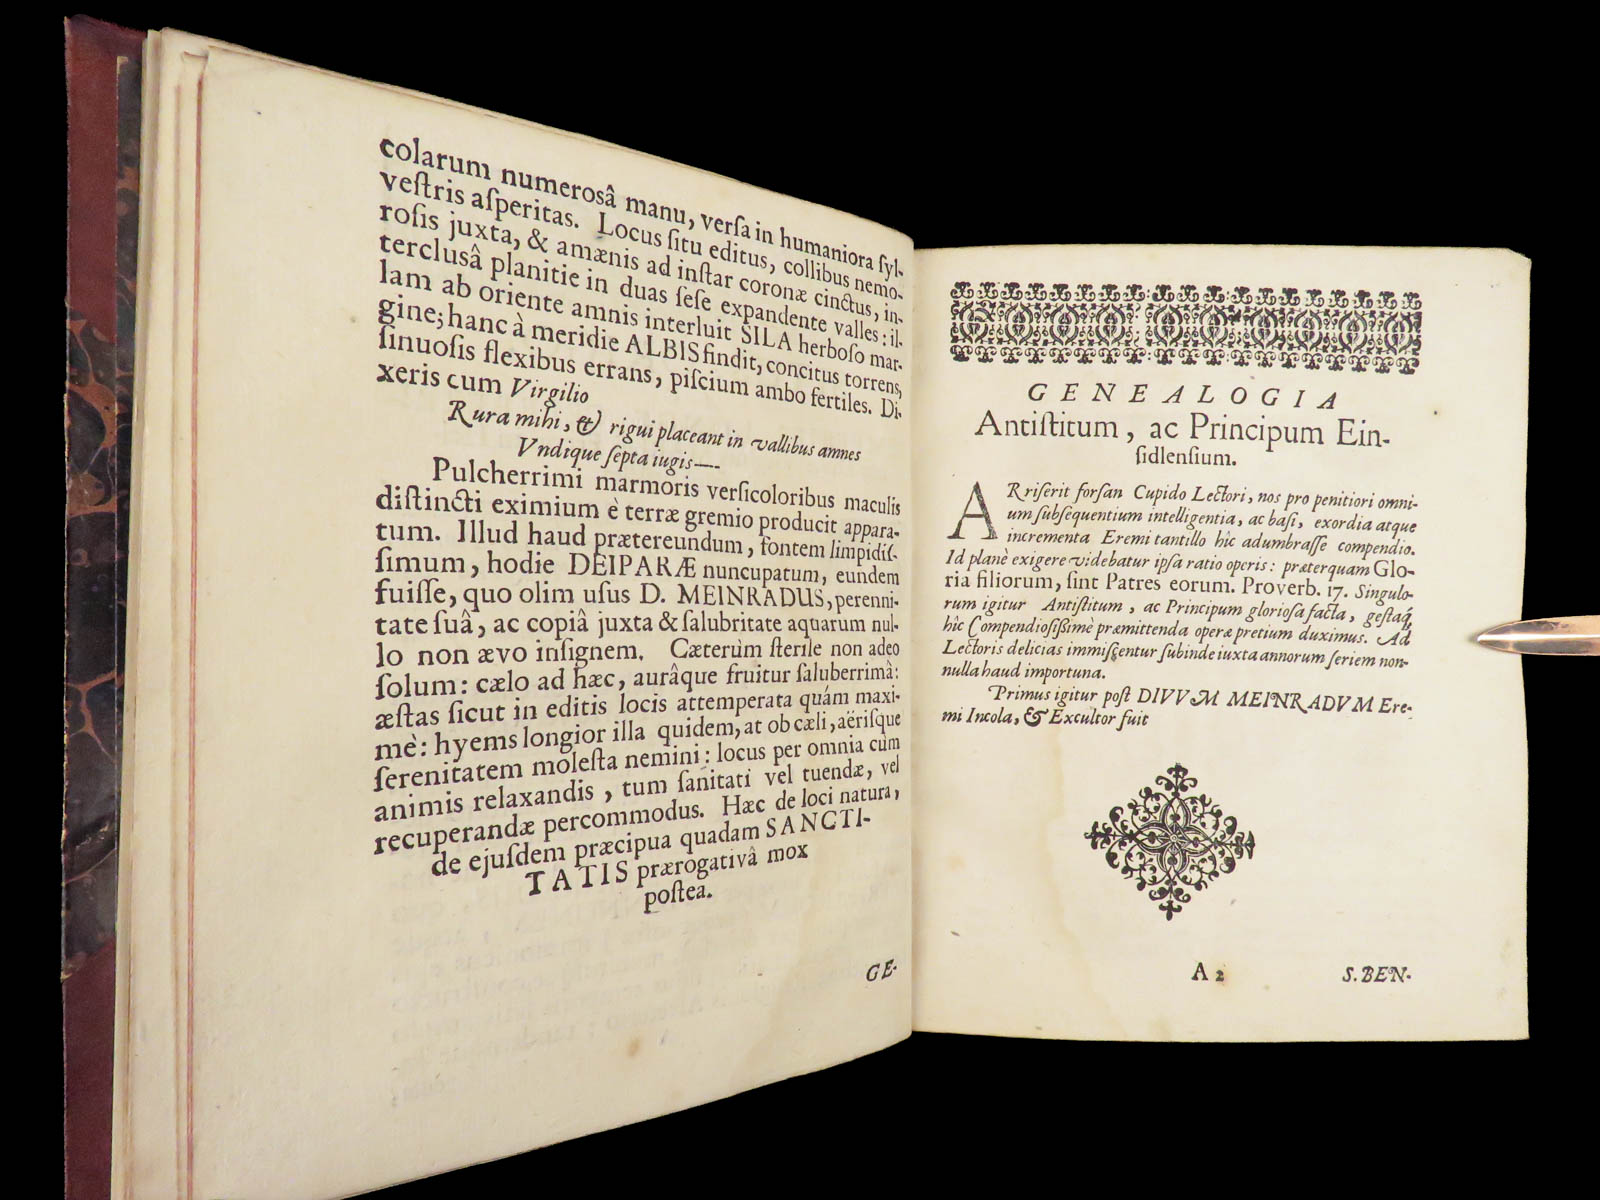 colarum numerosâ manu, verſa in humaniora ſyl-
veſtris aſperitas. Locus ſitu editus, collibus nemo-
roſis juxta, & amænis ad inſtar coronæ cinctus, in-
terclusâ planitie in duas ſeſe expandente valles: il-
lam ab oriente amnis interluit SILA herboſo mar-
gine; hanc à meridie ALBIS findit, concitus torrens,
ſinuoſis flexibus errans, piſcium ambo fertiles. Di-
xeris cum Virgilio
Rura mihi, & rigui placeant in vallibus amnes
Vndique ſepta iugis—
Pulcherrimi marmoris verſicoloribus maculis
diſtincti eximium è terræ gremio producit appara-
tum. Illud haud prætereundum, fontem limpidiſ-
ſimum, hodie DEIPARÆ nuncupatum, eundem
fuiſſe, quo olim uſus D. MEINRADUS, perenni-
tate ſuâ, ac copiâ juxta & ſalubritate aquarum nul-
lo non ævo inſignem. Cæterùm ſterile non adeo
ſolum: cælo ad hæc, aurâque fruitur ſaluberrimâ:
æſtas ſicut in editis locis attemperata quám maxi-
mè: hyems longior illa quidem, at ob cæli, aëriſque
ſerenitatem moleſta nemini: locus per omnia cùm
animis relaxandis, tum ſanitati vel tuendæ, vel
recuperandæ percommodus. Hæc de loci natura,
de ejuſdem præcipua quadam SANCTI-
TATIS prærogativâ mox
poſtea.
GE-
GENEALOGIA
Antiſtitum, ac Principum Ein-
ſidlenſium.
ARriſerit forſan Cupido Lectori, nos pro penitiori omni-
um ſubſequentium intelligentia, ac baſi, exordia atque
incrementa Eremi tantillo hîc adumbraſſe compendio.
Id planè exigere videbatur ipſa ratio operis: præterquam Glo-
ria filiorum, ſint Patres eorum. Proverb. 17. Singulo-
rum igitur Antiſtitum, ac Principum glorioſa facta, geſtaq́,
hîc Compendioſiſſimè præmittenda operæ pretium duximus. Ad
Lectoris delicias immiſcentur ſubinde iuxta annorum ſeriem non-
nulla haud importuna.
Primus igitur poſt DIVVM MEINRADVM Ere-
mi Incola, & Excultor fuit
A 2
S. BEN-